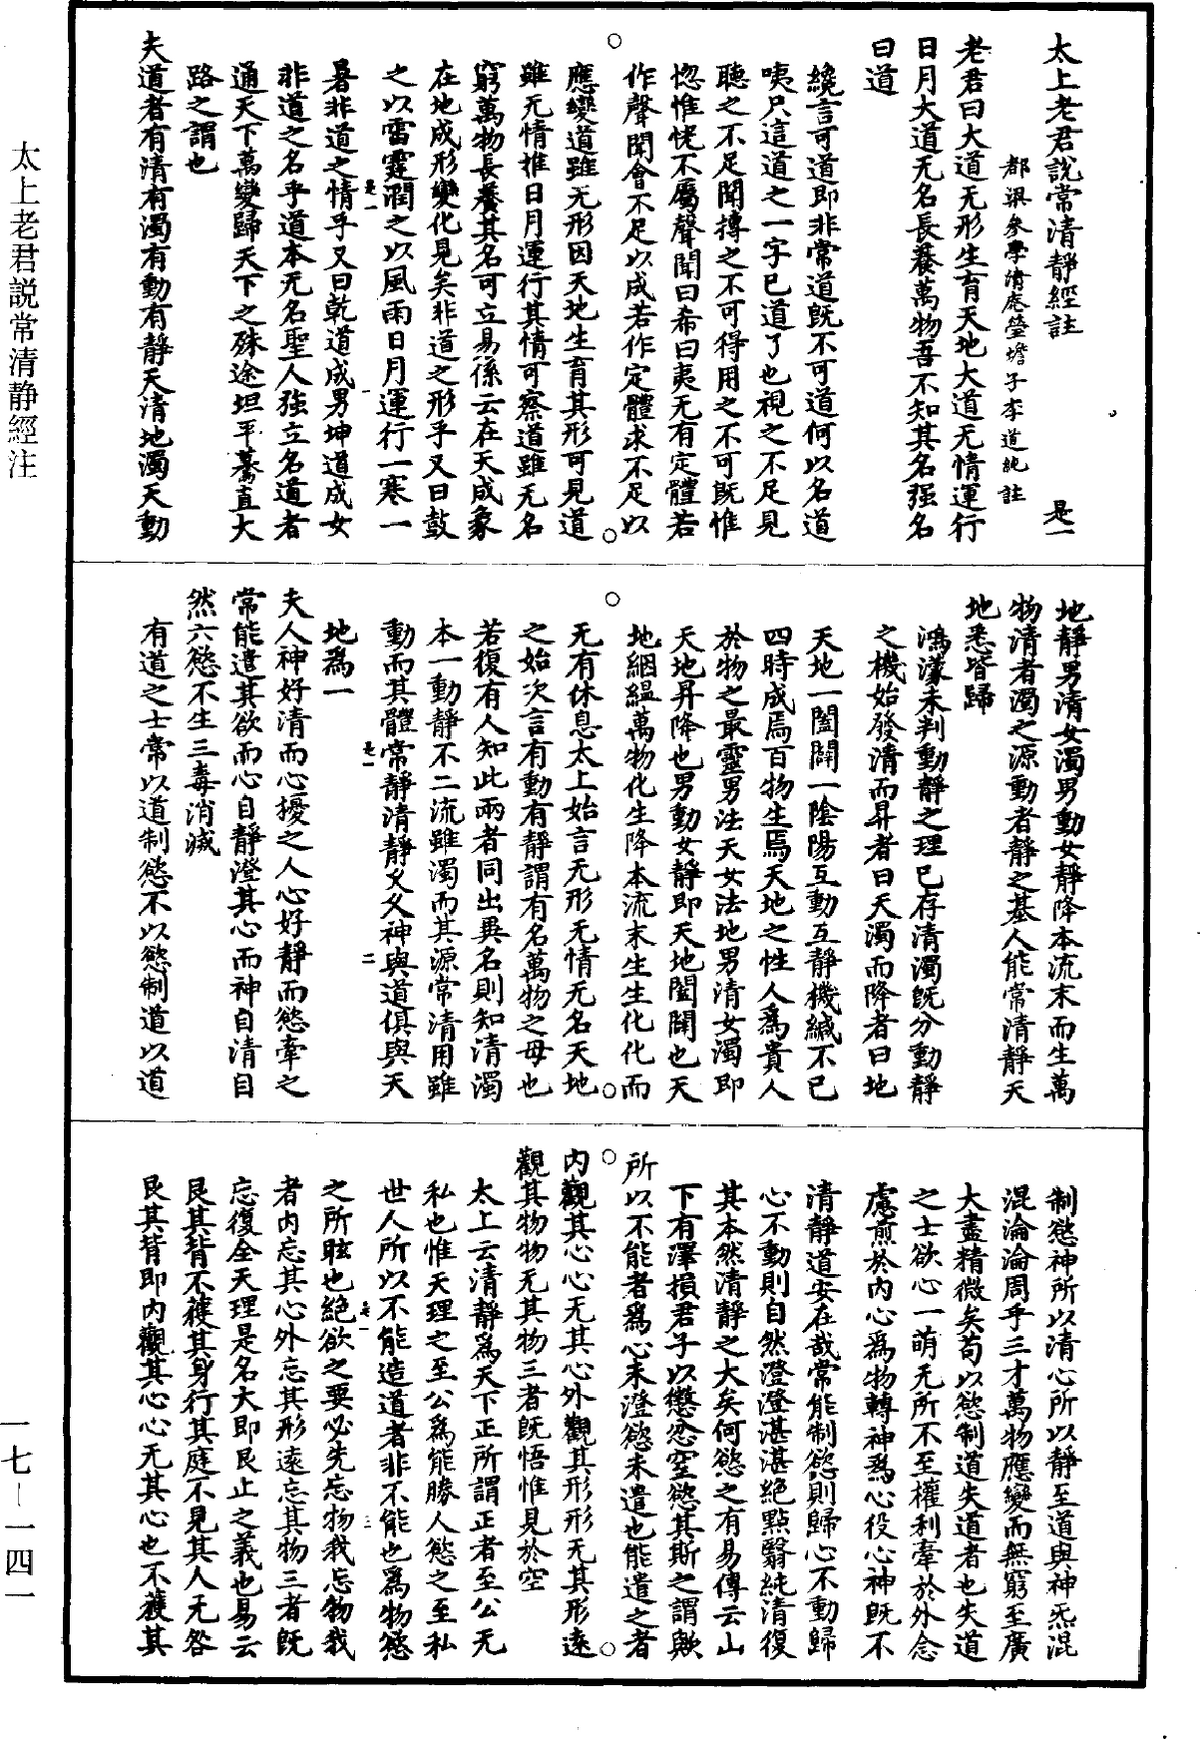 太上老君説常清靜經註 是一
都梁參學清庵瑩蟾子李道純註
老君曰大道无形生育天地大道无情運行
日月大道无名長養萬物吾不知其名强名
曰道
纔言可道即非常道既不可道何以名道
咦只這道之一字已道了也視之不足見
聽之不足聞摶之不可得用之不可既惟
惚惟恍不屬聲聞曰希曰夷无有定體若
作聲聞會不足以成若作定體求不足以
應變道雖无形因天地生育其形可見道
雖无情惟日月運行其情可察道雖无名
窮萬物長養其名可立易係云在天成象
在地成形變化見矣非道之形乎又曰鼓
之以雷霆潤之以風雨日月運行一寒一
暑非道之情乎又曰乾道成男坤道成女
非道之名乎道本无名聖人強立名道者
通天下萬變歸天下之殊途坦平驀直大
路之謂也
夫道者有清有濁有動有靜天清地濁天動
地靜男清女濁男動女靜降本流末而生萬
物清者濁之源動者靜之基人能常清靜天
地悉皆歸
鴻濛未判動靜之理已存清濁既分動靜
之機始發清而昇者曰天濁而降者曰地
天地一闔闢一陰陽互動互靜機緘不已
四時成焉百物生焉天地之性人爲貴人
於物之最靈男法天女法地男清女濁即
天地昇降也男動女靜即天地闔闢也天
地絪緼萬物化生降本流末生生化化而
无有休息太上始言无形无情无名天地
之始次言有動有靜謂有名萬物之母也
若復有人知此兩者同出異名則知清濁
本一動靜不二流雖濁而其源常清用雖
動而其體常靜清靜久久神與道俱與天
地爲一
夫人神好清而心擾之人心好靜而慾牽之
常能遣其欲而心自靜澄其心而神自清自
然六慾不生三毒消滅
有道之士常以道制慾不以慾制道以道
制慾神所以清心所以靜至道與神炁混
混淪淪周乎三才萬物應變而無窮至廣
大盡精微矣苟以慾制道失道者也失道
之士欲心一萌无所不至權利牽於外念
慮煎於内心爲物轉神爲心役心神既不
清靜道安在哉常能制慾則歸心不動歸
心不動則自然澄澄湛湛絶點翳純清復
其本然清靜之大矣何慾之有易傳云山
下有澤損君子以懲忿窒慾其斯之謂歟
所以不能者爲心未澄慾未遣也能遣之者
内觀其心心无其心外觀其形形无其形遠
觀其物物无其物三者既悟惟見於空
太上云清靜爲天下正所謂正者至公无
私也惟天理之至公爲能勝人慾之至私
世人所以不能造道者非不能也爲物慾
之所眩也絶欲之要必先忘物我忘物我
者内忘其心外忘其形遠忘其物三者既
忘復全天理是名大即艮止之義也易云
艮其背不獲其身行其庭不見其人无咎
艮其背即内觀其心心无其心也不獲其
太上老君説常清静經注
一七—一四一